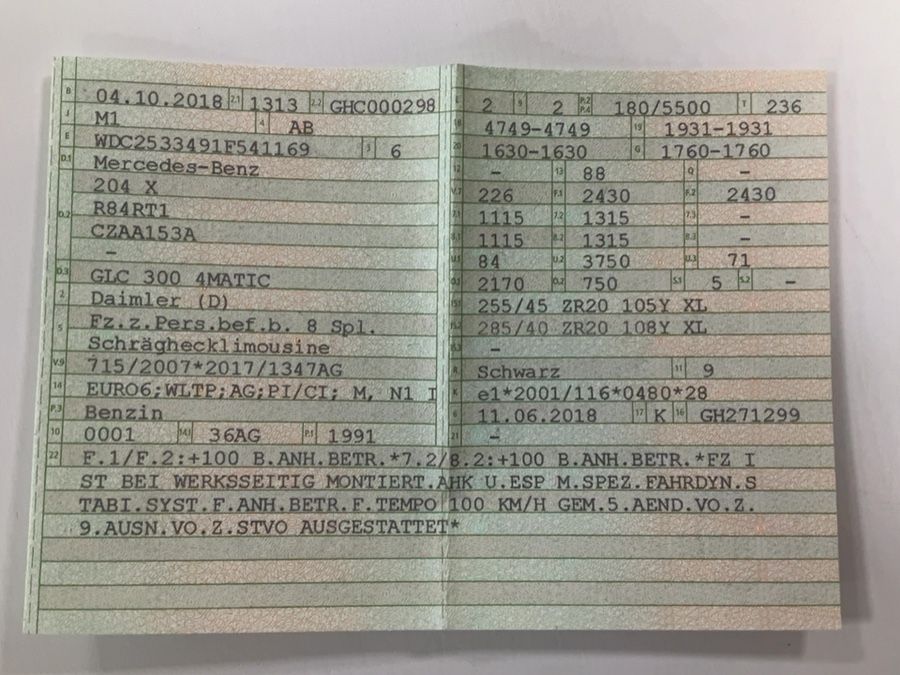 B 04.10.2018 2.1 1313 2.2 GHC000298
J M1 4 AB
E WDC2533491F541169 3 6
D.1 Mercedes-Benz
204 X
D.2 R84RT1
CZAA153A
-
D.3 GLC 300 4MATIC
2 Daimler (D)
5 Fz.z.Pers.bef.b. 8 Spl.
Schräghecklimousine
V.9 715/2007*2017/1347AG
14 EURO6;WLTP;AG;PI/CI; M, N1 I
P.3 Benzin
10 0001 14.1 36AG P.1 1991
L 2 9 2 P.2 P.4 180/5500 T 236
18 4749-4749 19 1931-1931
20 1630-1630 G 1760-1760
12 - 13 88 Q -
V.7 226 F.1 2430 F.2 2430
7.1 1115 7.2 1315 7.3 -
8.1 1115 8.2 1315 8.3 -
U.1 84 U.2 3750 U.3 71
O.1 2170 O.2 750 S.1 5 S.2 -
15.1 255/45 ZR20 105Y XL
15.2 285/40 ZR20 108Y XL
15.3 -
R Schwarz 11 9
K e1*2001/116*0480*28
6 11.06.2018 17 K 16 GH271299
21 -
22 F.1/F.2:+100 B.ANH.BETR.*7.2/8.2:+100 B.ANH.BETR.*FZ I
ST BEI WERKSSEITIG MONTIERT.AHK U.ESP M.SPEZ.FAHRDYN.S
TABI.SYST.F.ANH.BETR.F.TEMPO 100 KM/H GEM.5.AEND.VO.Z.
9.AUSN.VO.Z.STVO AUSGESTATTET*